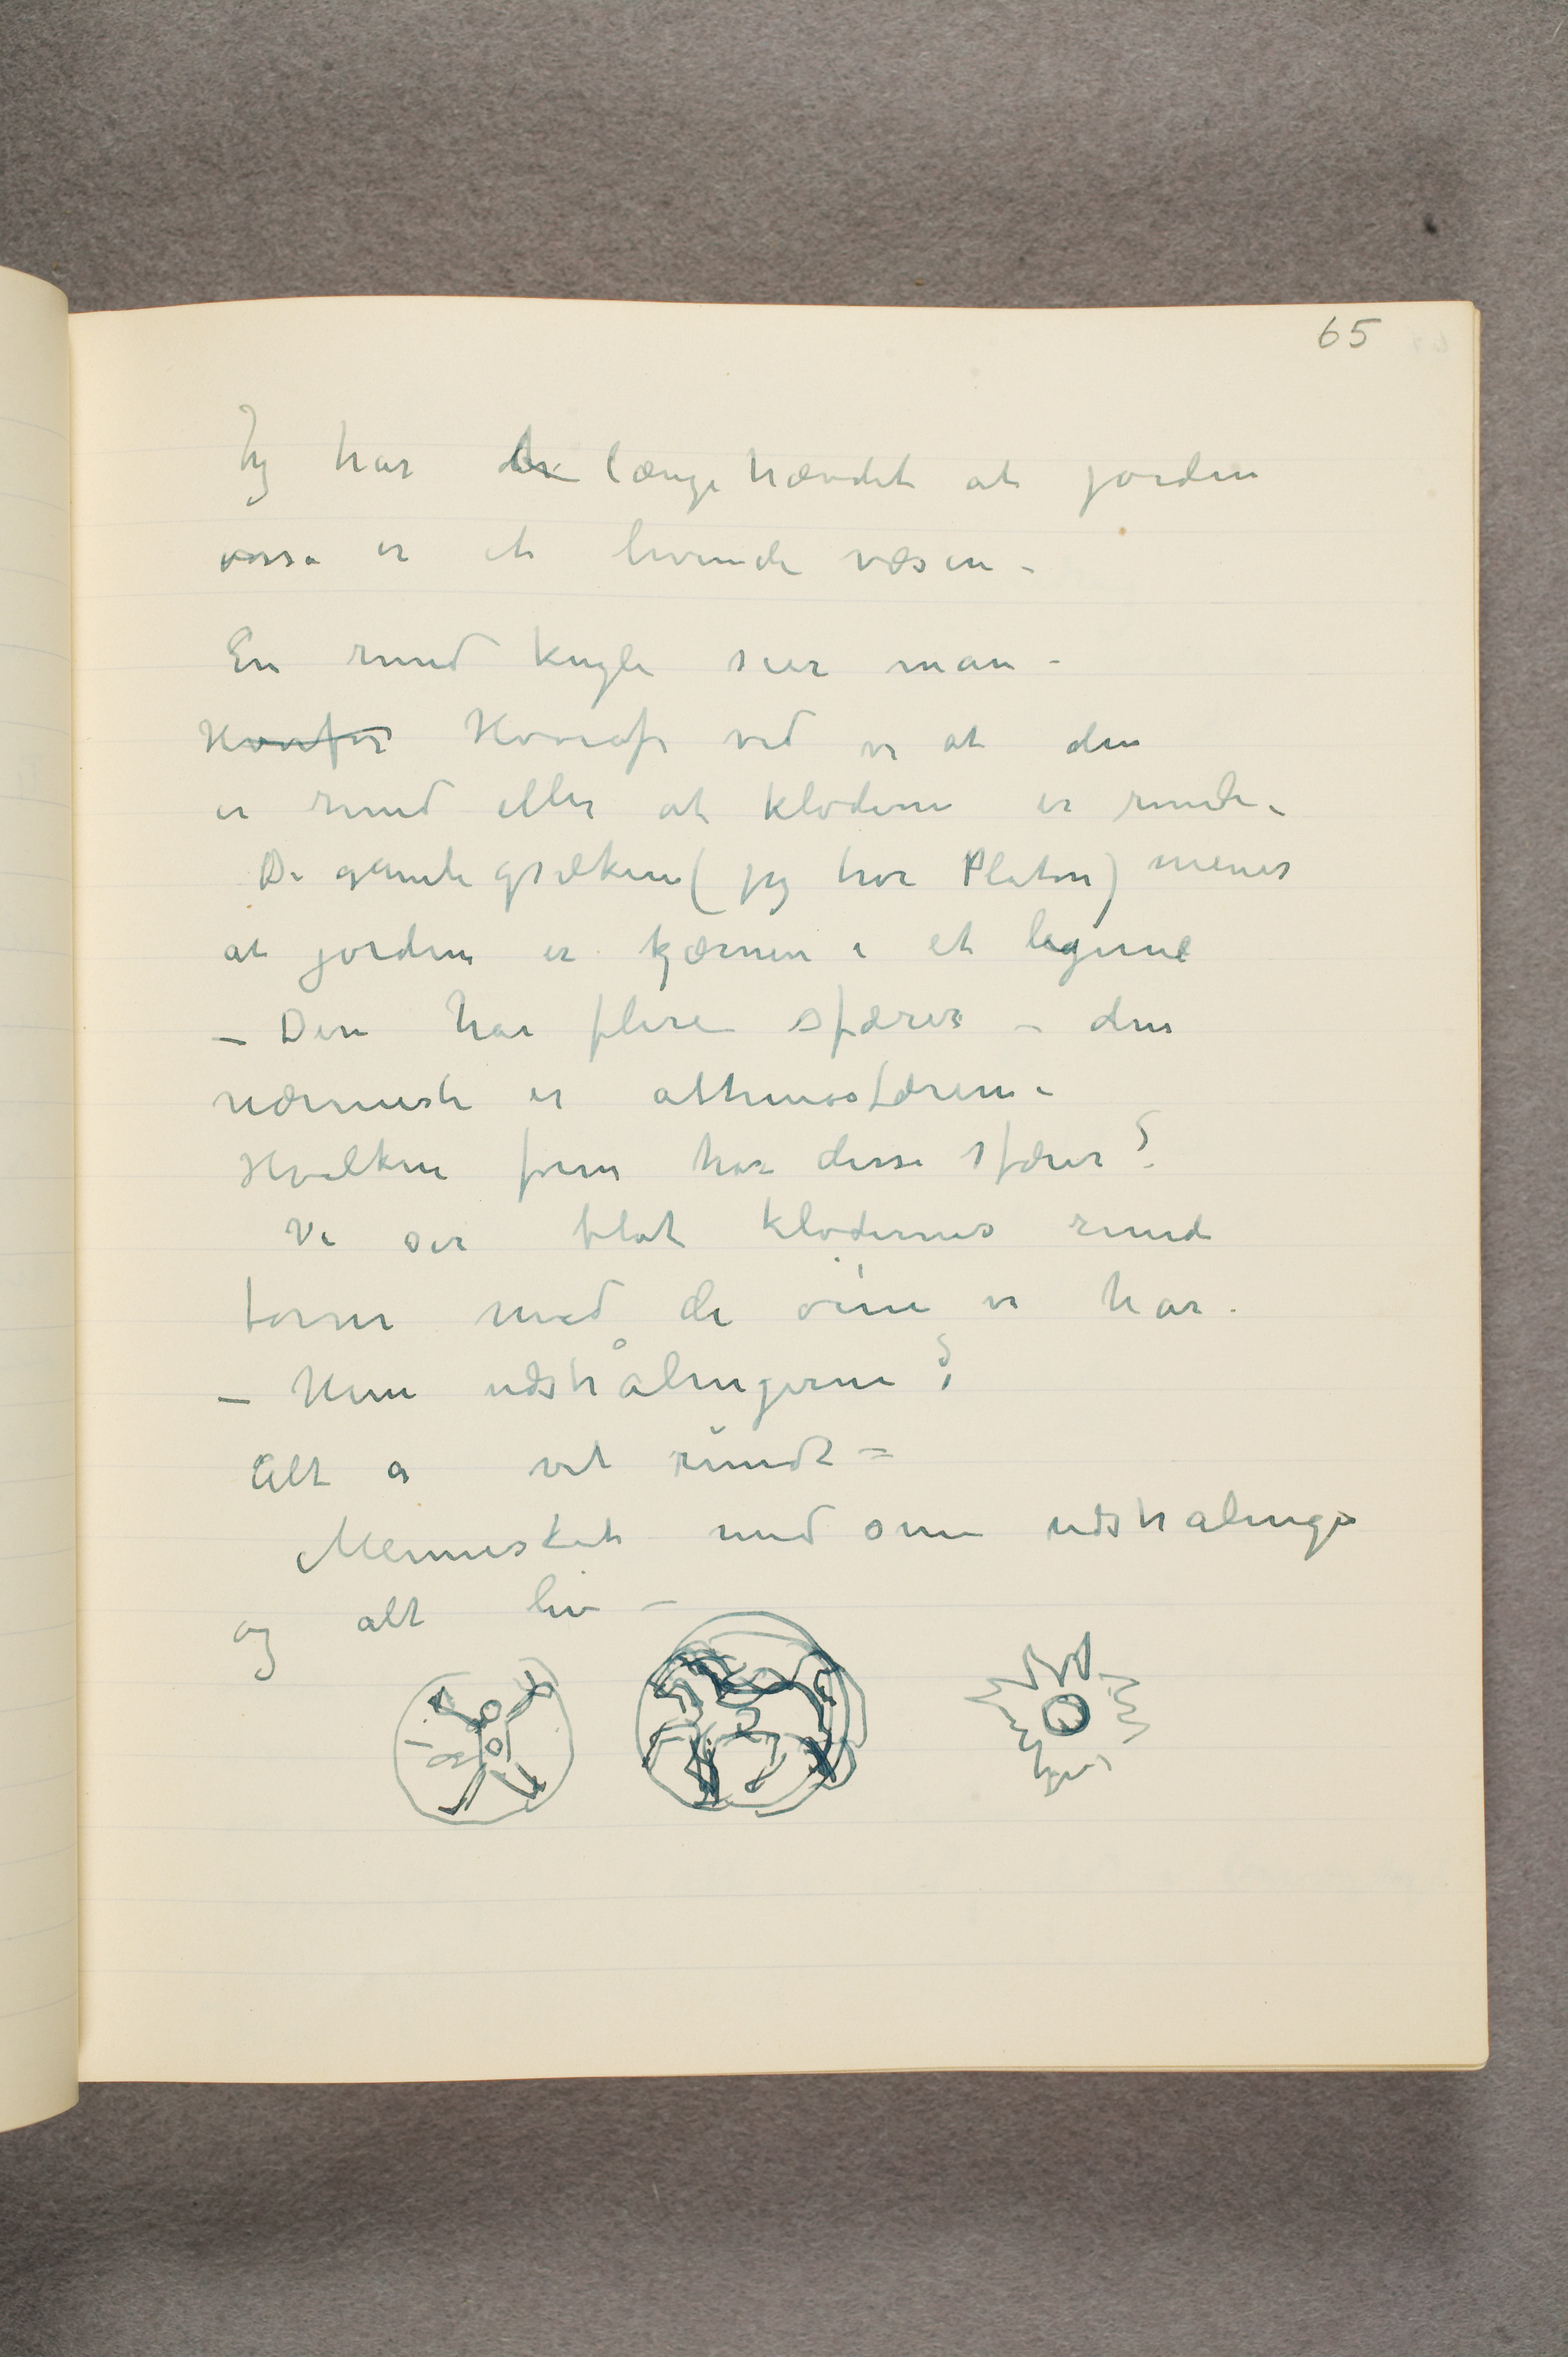 65
Jeg har længe hævdet at jorden
også er et levende væsen –
En rund kugle sier man –
Hvorfor Hvoraf ved vi at den
er rund eller at kloderne er runde –
De gamle grækere (jeg tror Platon) mener
at jorden er kjærnen i et legeme
– Den har flere sfærer – den
nærmeste er athmosfæren –
Hvilken form har disse sfærer?
Vi ser blot klodernes runde
form med de øine vi har.
– Men udstrålingerne?
Alt er vel rundt –
Mennesket med sine udstralinger
og alt liv –